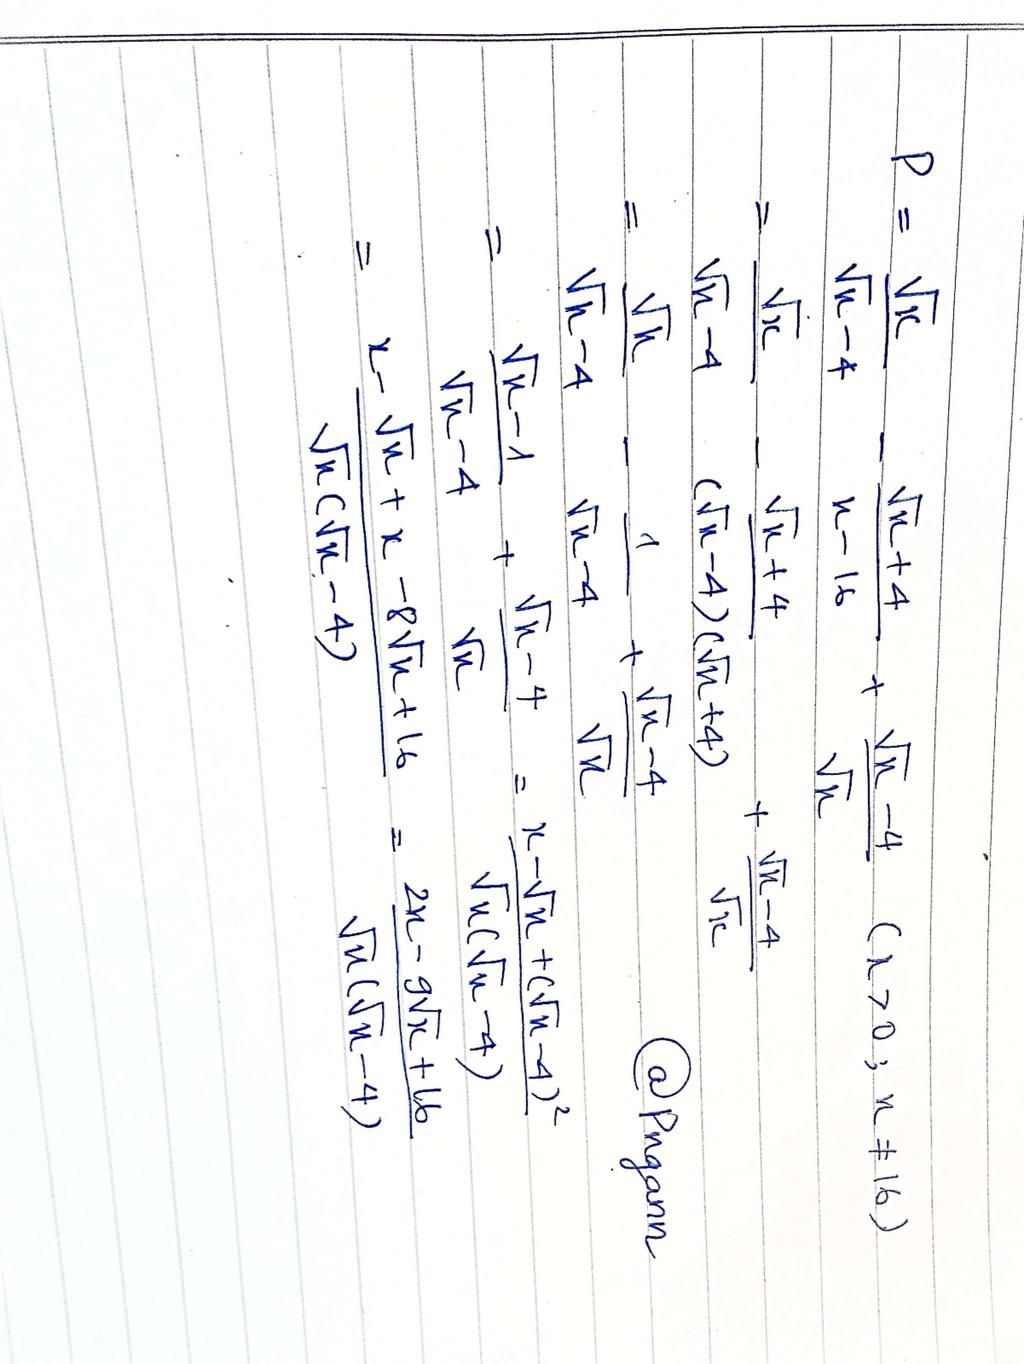 P = √x/(√x-4) - (√x+4)/(x-16) + (√x-4)/√x (x>0; x≠16)
= √x/(√x-4) - (√x+4)/((√x-4)(√x+4)) + (√x-4)/√x
= √x/(√x-4) - 1/(√x-4) + (√x-4)/√x
@Pngann
= (√x-1)/(√x-4) + (√x-4)/√x = (x-√x+(√x-4)²)/(√x(√x-4))
= (x-√x+x-8√x+16)/(√x(√x-4)) = (2x-9√x+16)/(√x(√x-4))